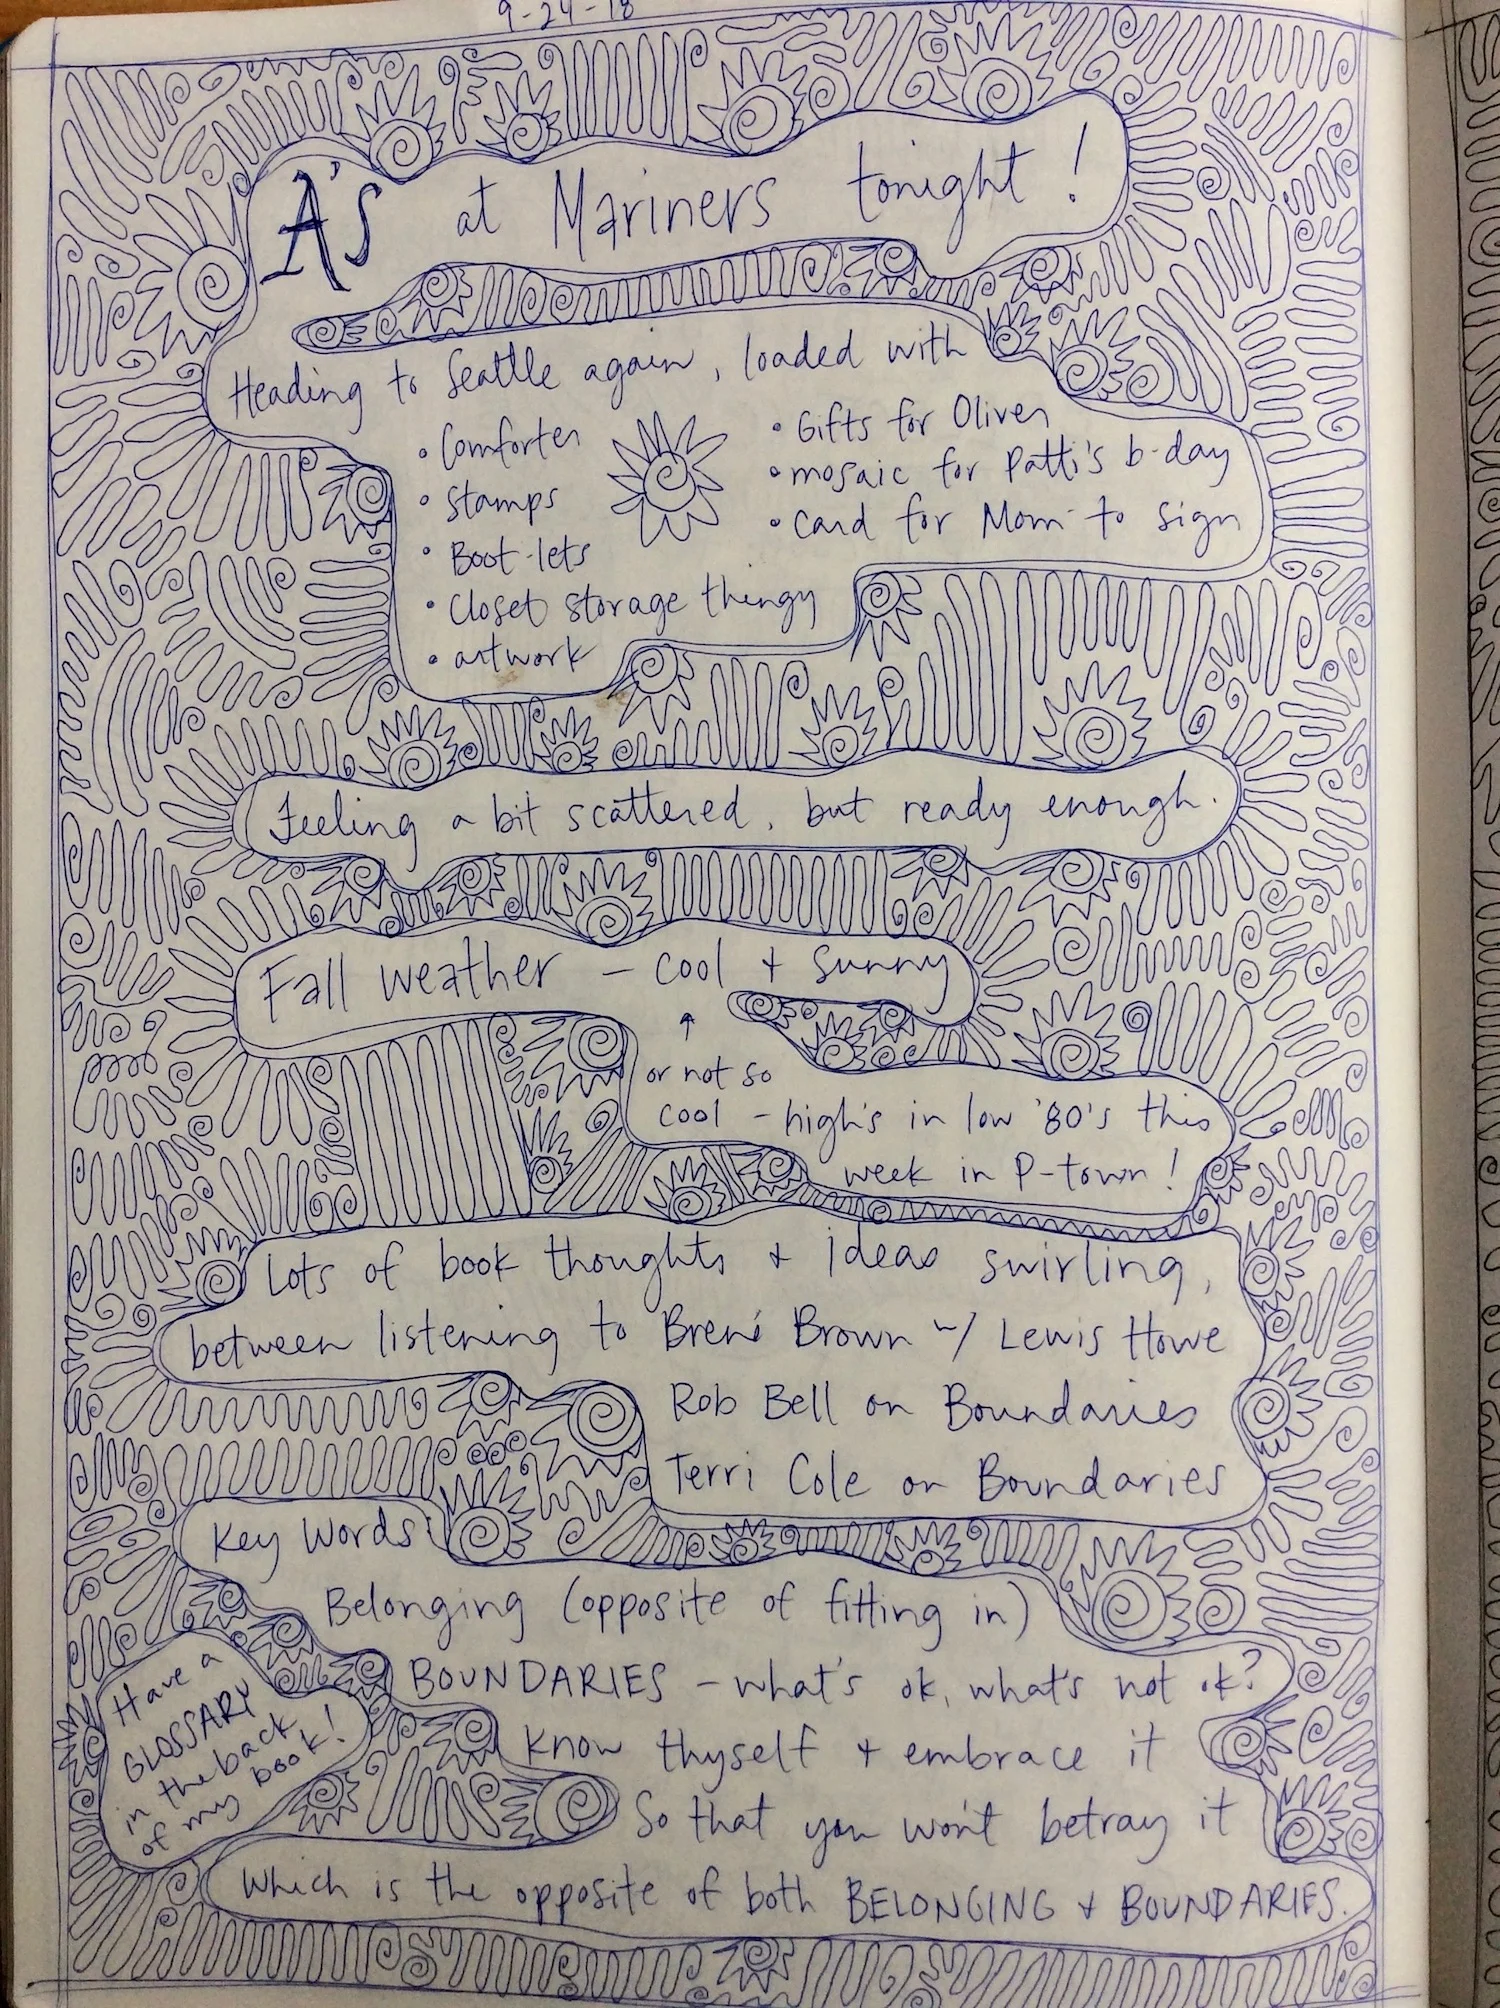 9-24-18
A's at Mariners tonight!
Heading to Seattle again, loaded with
• Comforter
• Stamps
• Boot-lets
• Closet storage thingy
• artwork
• Gifts for Oliver
• mosaic for Patti's b-day
• Card for Mom to sign
Feeling a bit scattered, but ready enough.
Fall weather – cool + sunny
↑
or not so
cool – high's in low '80's this
week in P-town!
Lots of book thoughts + ideas swirling,
between listening to Brené Brown w/ Lewis Howe
Rob Bell on Boundaries
Terri Cole on Boundaries
Key Words:
Belonging (opposite of fitting in)
BOUNDARIES – what's ok, what's not ok?
Know thyself + embrace it
So that you won't betray it
Which is the opposite of both BELONGING + BOUNDARIES.
Have a
GLOSSARY
in the back
of my book!